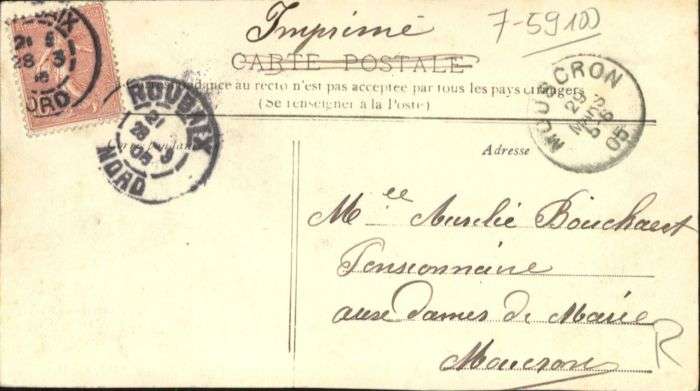 Imprimé
7-59100
CARTE POSTALE
dance au recto n'est pas acceptée par tous les pays étrangers
(Se renseigner à la Poste)
ROUBAIX
21
28 3
05
NORD
BAIX
28 3
NORD
MOUSCRON
29
MARS
5-6
05
Adresse
Melle Aurélie Bouchaert
Pensionnaire
aux Dames de Marie
Mouscron
R